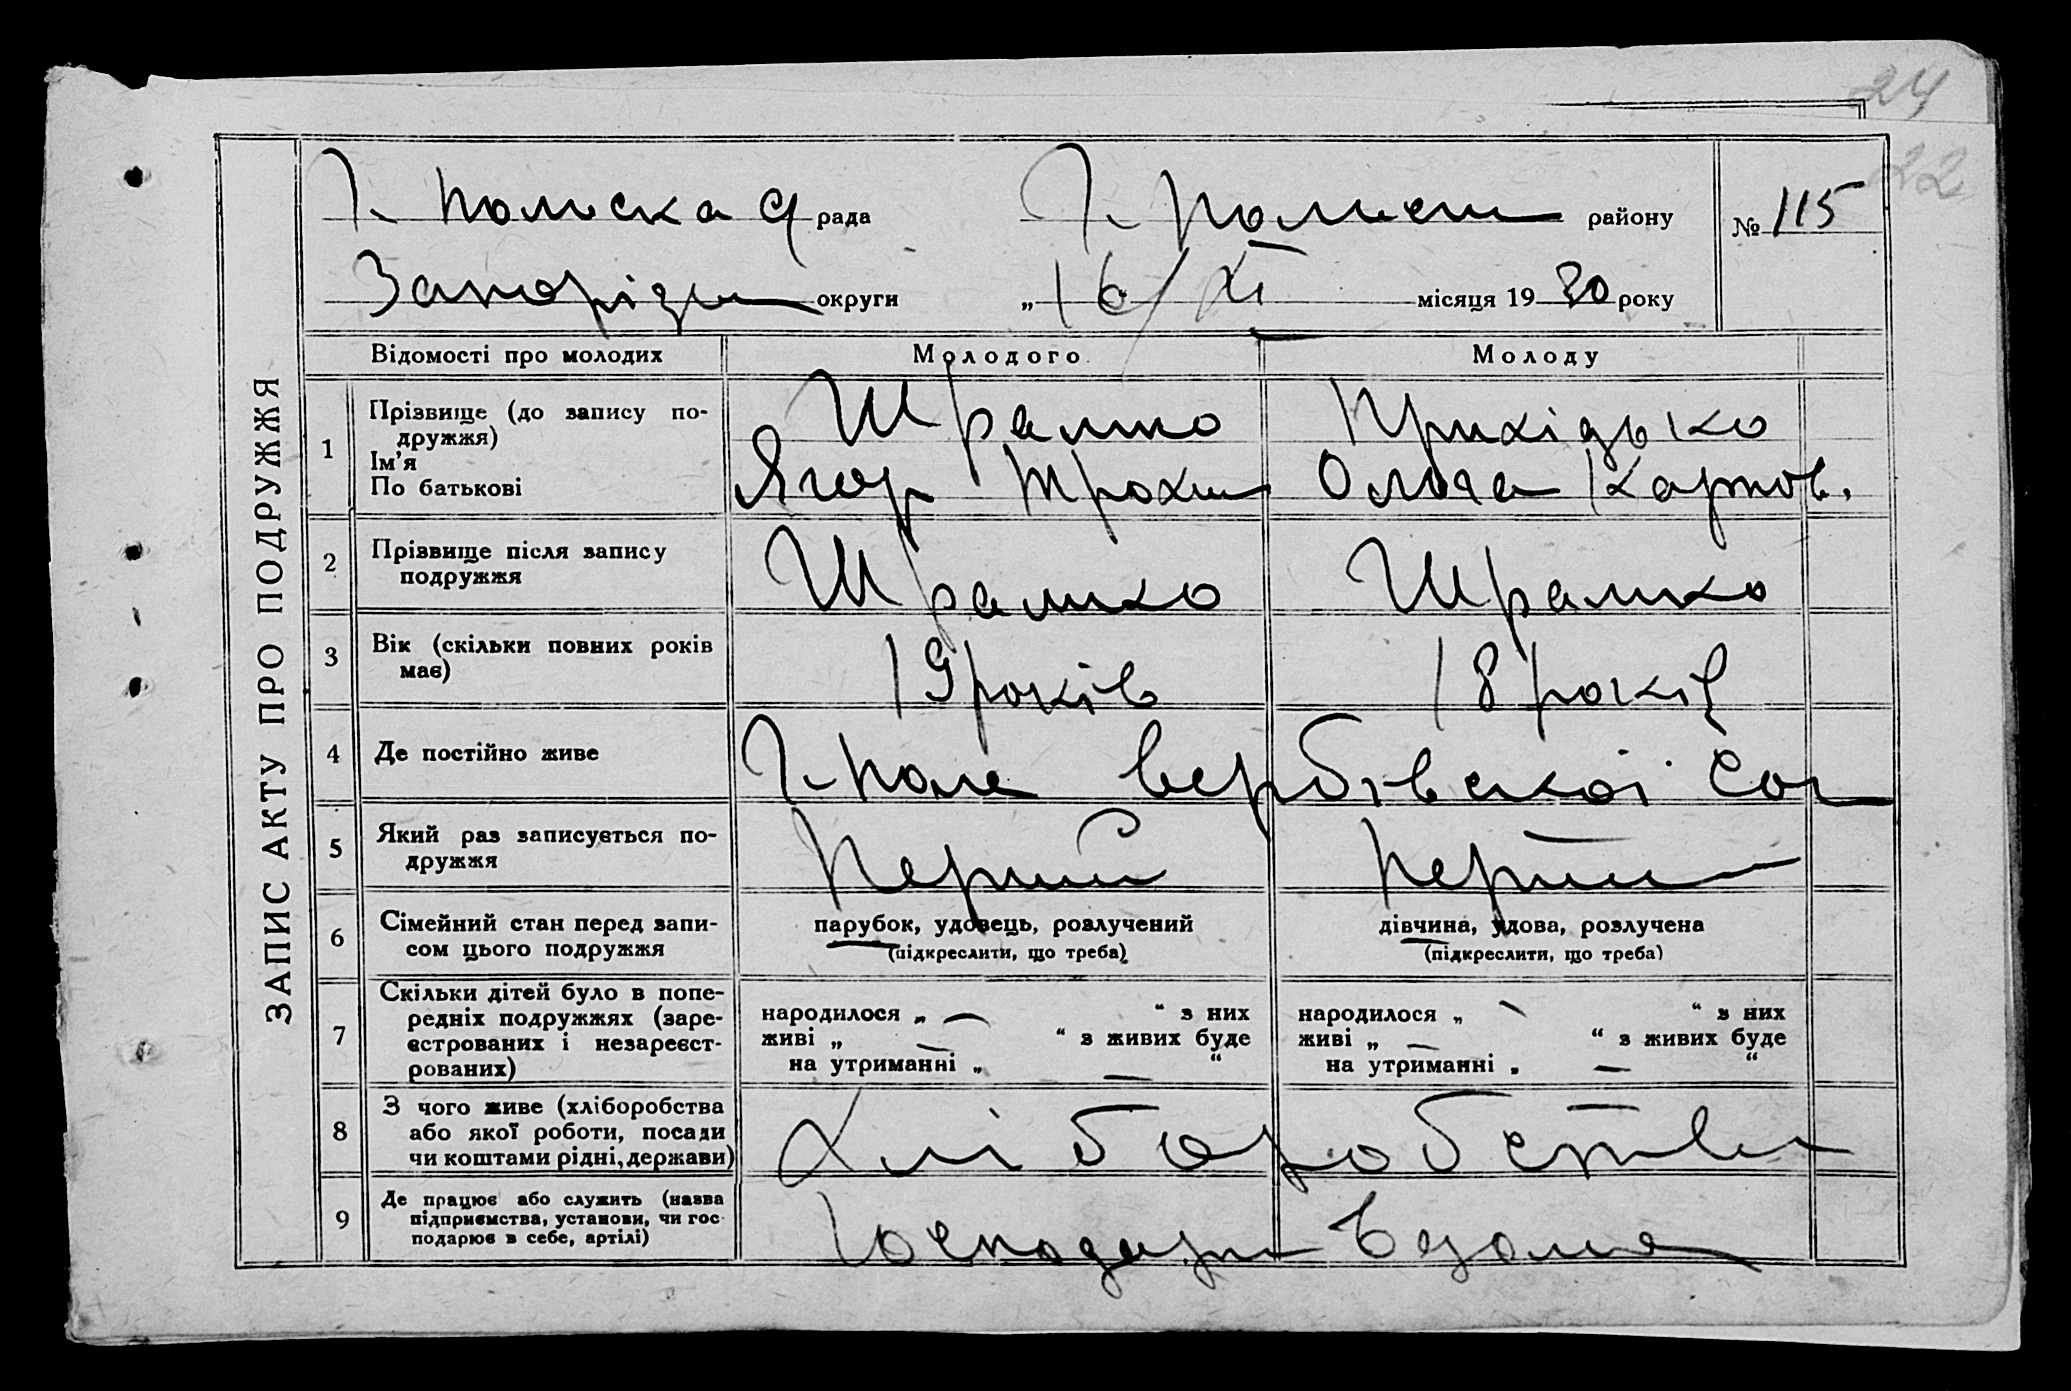 24
22
ЗАПИС АКТУ ПРО ПОДРУЖЖЯ
Г. Польська С/ рада Г. Польськ району № 115
Запоріж округи „ 16/XI місяця 19 30 року
Відомості про молодих Молодого Молоду
1 Прізвище (до запису по-
дружжя)
Ім'я
По батькові
Шрамко
Ягор Трохим
Прихідько
Ольга Карпов.
2 Прізвище після запису
подружжя
Шрамко Шрамко
3 Вік (скільки повних років
має)
19 років 18 років
4 Де постійно живе Г. Поле Вербівської
5 Який раз записується по-
дружжя
Перший Перший
6 Сімейний стан перед запи-
сом цього подружжя
парубок, удовець, розлучений
(підкреслити, що треба)
дівчина, удова, розлучена
(підкреслити, що треба)
7 Скільки дітей було в попе-
редніх подружжях (заре-
єстрованих і незареєст-
рованих)
народилося „ — “ з них
живі „ — “ з живих буде
на утриманні „ — “
народилося „ — “ з них
живі „ — “ з живих буде
на утриманні „ — “
8 З чого живе (хліборобства
або якої роботи, посади
чи коштами рідні, держави)
Хліборобства
9 Де працює або служить (назва
підприємства, установи, чи гос
подарює в себе, артілі)
Господарю вдома